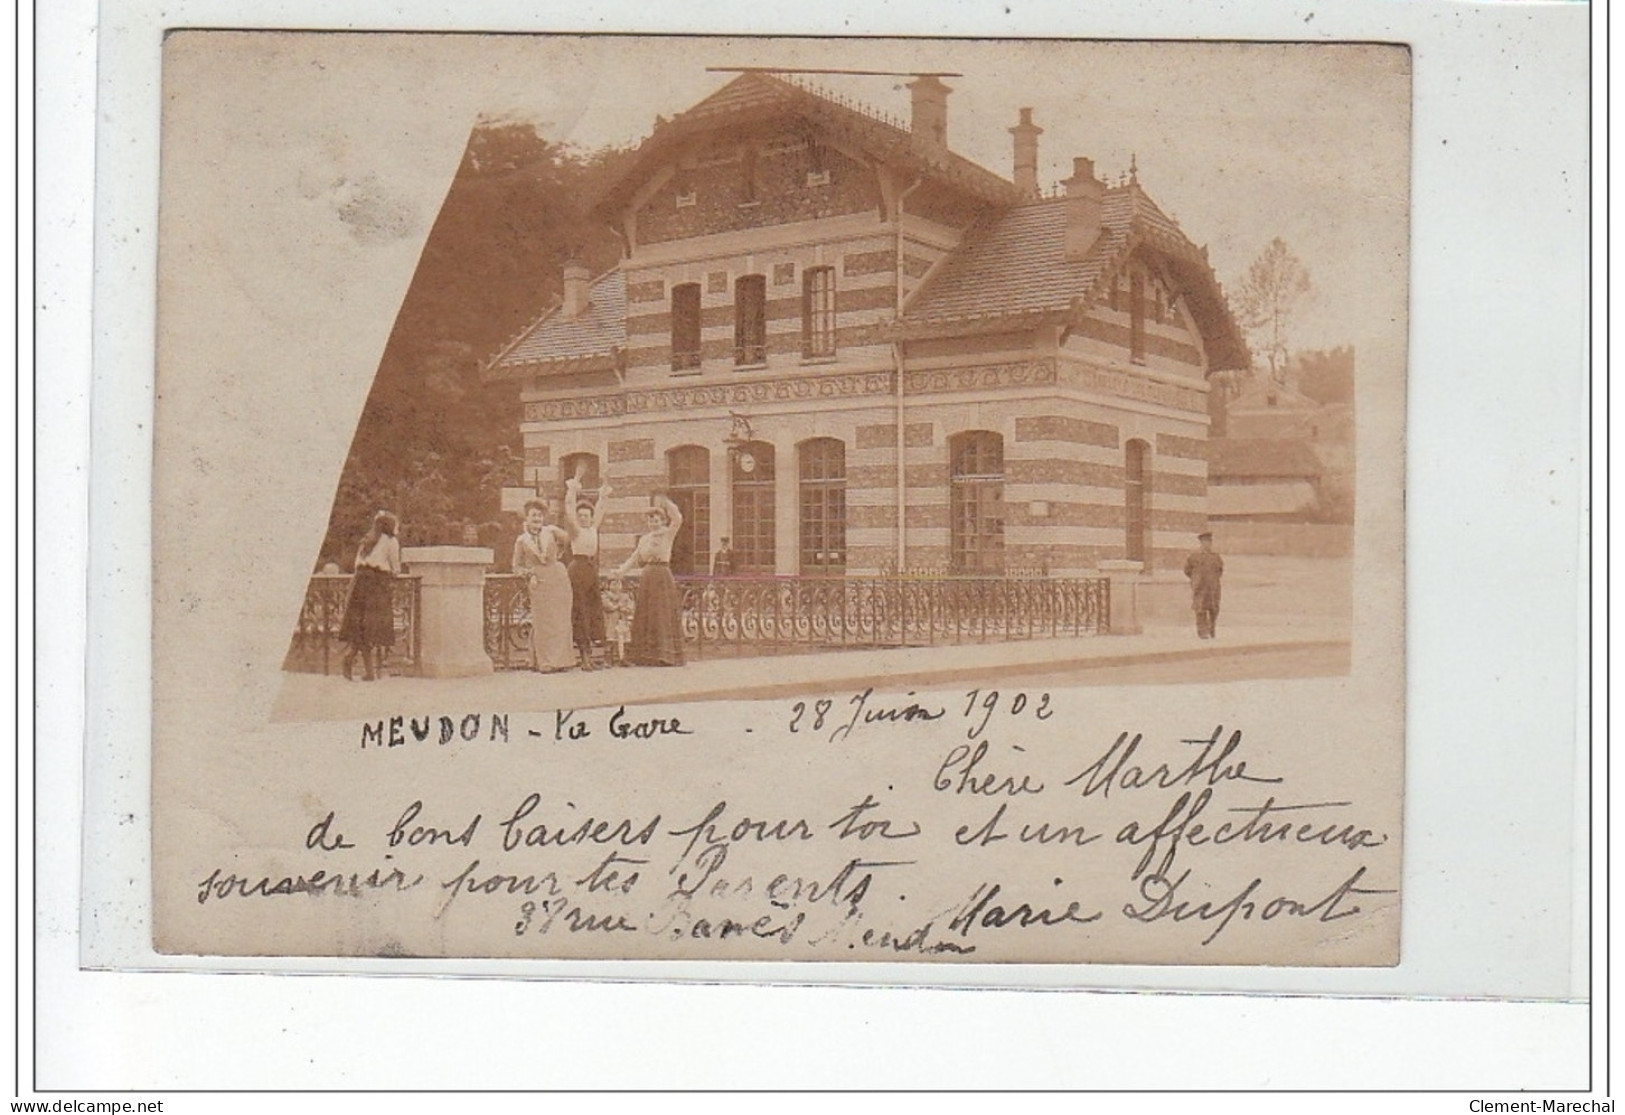 MEUDON - La Gare - 28 Juin 1902
Chère Marthe
de bons baisers pour toi et un affectueux
souvenir pour tes Parents.
Marie Dupont
37 rue Banès Meudon
Clement-Marechal